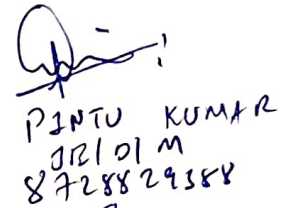 PINTU KUMAR
JR/D/M
8728829388